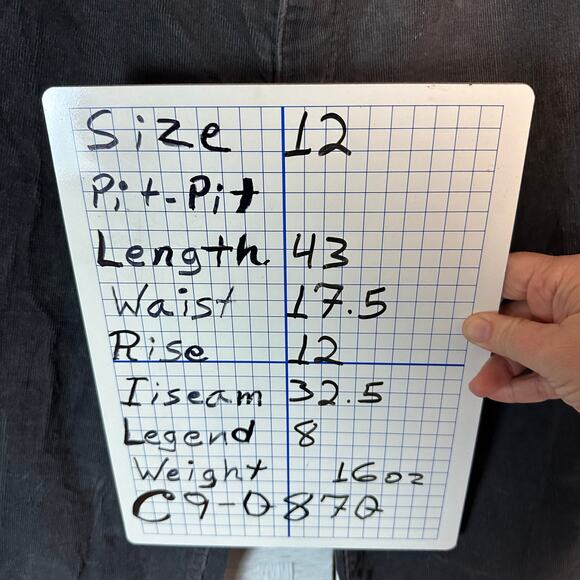 Size 12
Pit-Pit
Length 43
Waist 17.5
Rise 12
Iiseam 32.5
Legend 8
Weight 16oz
C9-0870